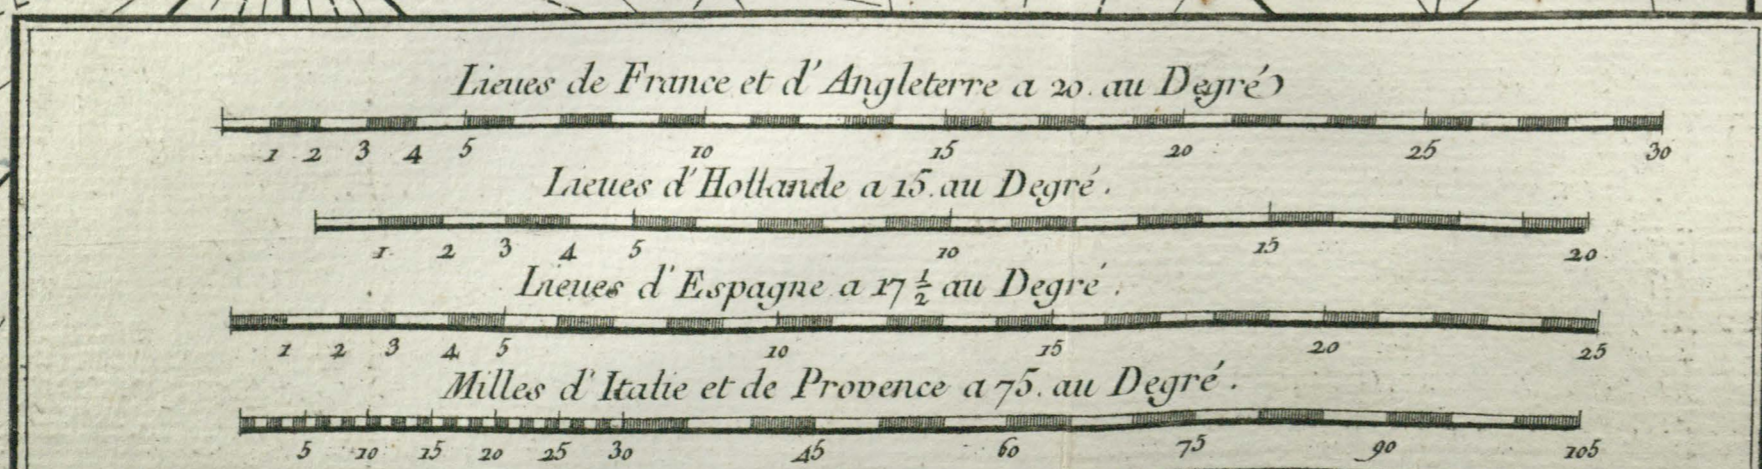 Lieues de France et d'Angleterre a 20. au Degré
1 2 3 4 5 10 15 20 25 30
Lieues d'Hollande a 15. au Degré.
1 2 3 4 5 10 15 20
Lieues d'Espagne a 17 ½ au Degré.
1 2 3 4 5 10 15 20 25
Milles d'Italie et de Provence a 75. au Degré.
5 10 15 20 25 30 45 60 75 90 105